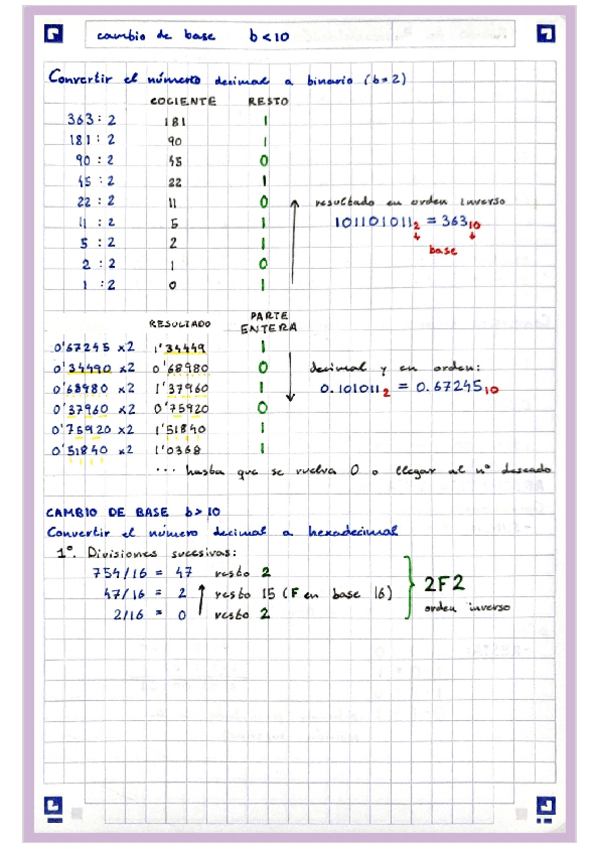 cambio de base b<10
Convertir el número decimal a binario (b=2)
COCIENTE RESTO
363 : 2 181 1
181 : 2 90 1
90 : 2 45 0
45 : 2 22 1
22 : 2 11 0
resultado en orden inverso
11 : 2 5 1
101101011₂ = 363₁₀
5 : 2 2 1
base
2 : 2 1 0
1 : 2 0 1
RESULTADO PARTE ENTERA
0'67245 x2 1'34449 1
0'34490 x2 0'68980 0
decimal y en orden:
0'68980 x2 1'37960 1
0.101011₂ = 0.67245₁₀
0'37960 x2 0'75920 0
0'75920 x2 1'51840 1
0'51840 x2 1'0368 1
... hasta que se vuelva 0 o llegar al nº deseado
CAMBIO DE BASE b>10
Convertir el número decimal a hexadecimal
1º. Divisiones sucesivas:
754/16 = 47 resto 2
47/16 = 2 resto 15 (F en base 16)
2F2
2/16 = 0 resto 2
orden inverso